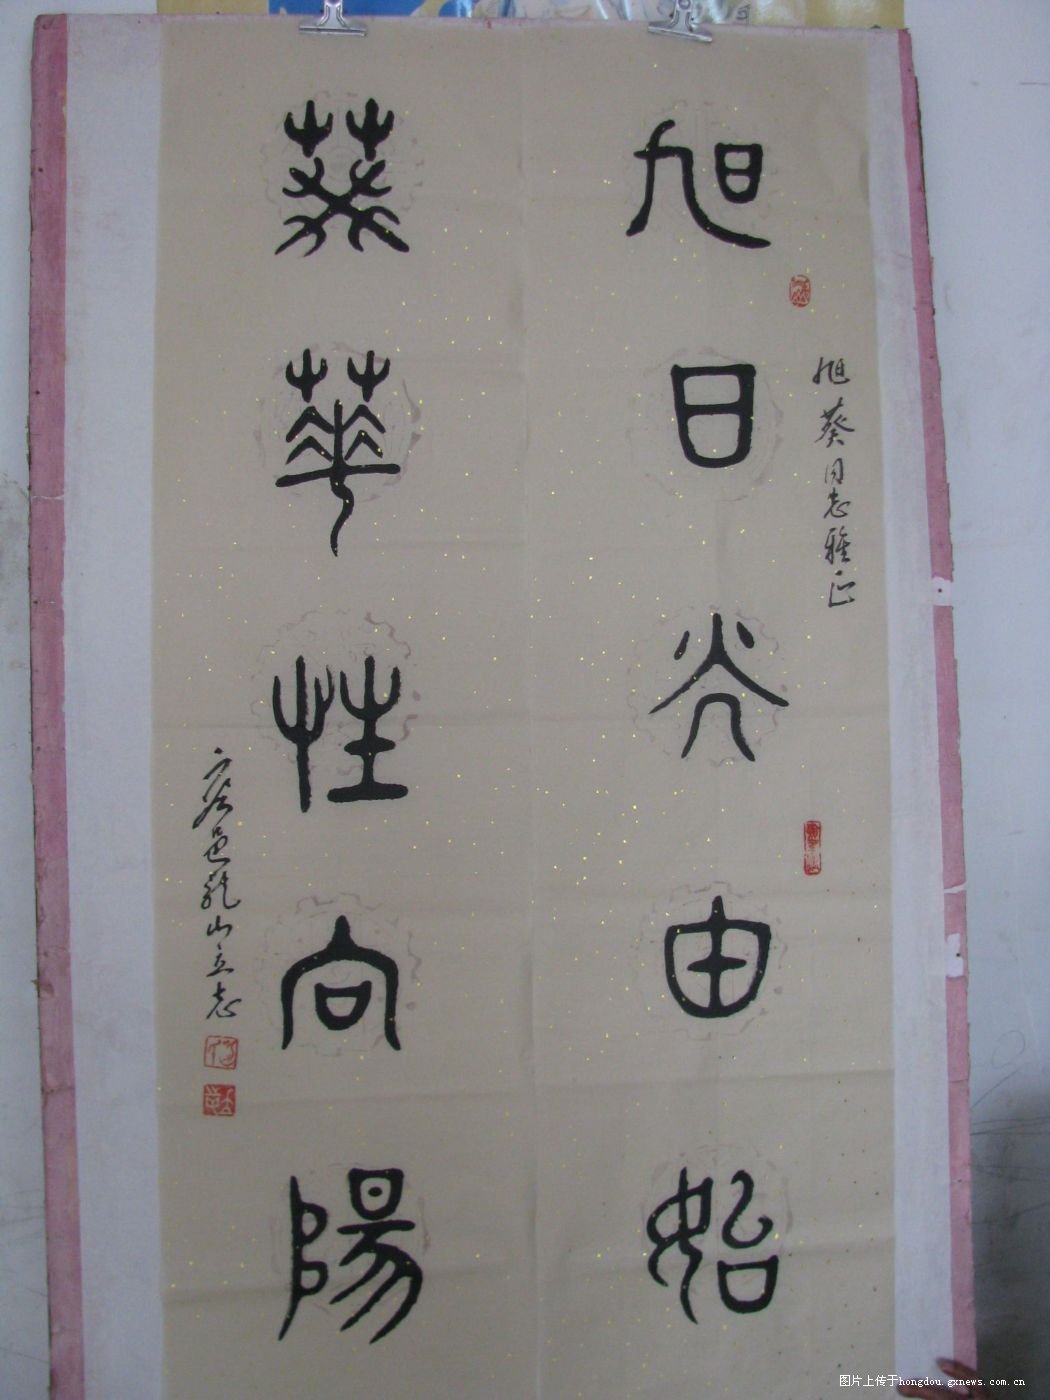 旭日光由始
葵華性向陽
旭葵同志雅正
邑龍山立志
图片上传于hongdou.gxnews.com.cn